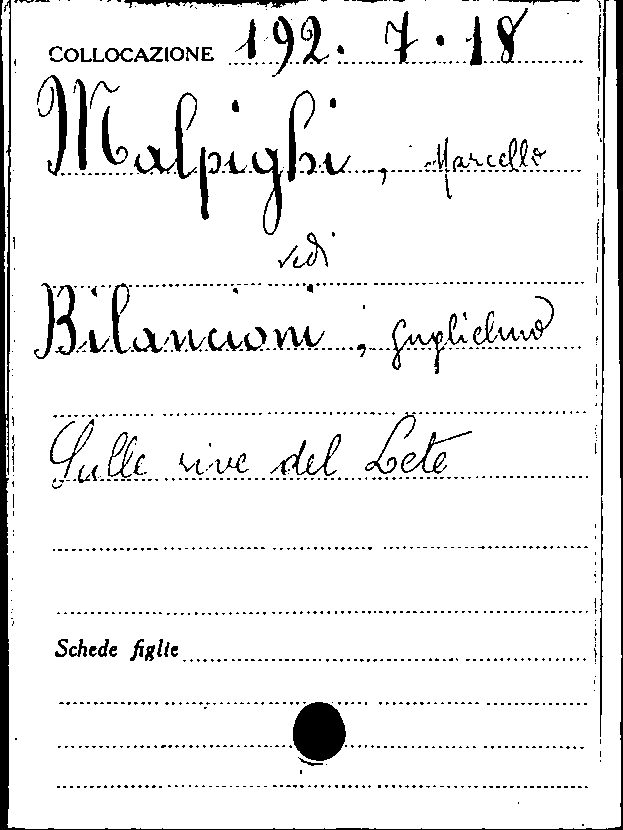 COLLOCAZIONE 192. 7. 18
Malpighi, Marcello
vedi
Bilancioni, Guglielmo
Sulle rive del Lete
Schede figlie